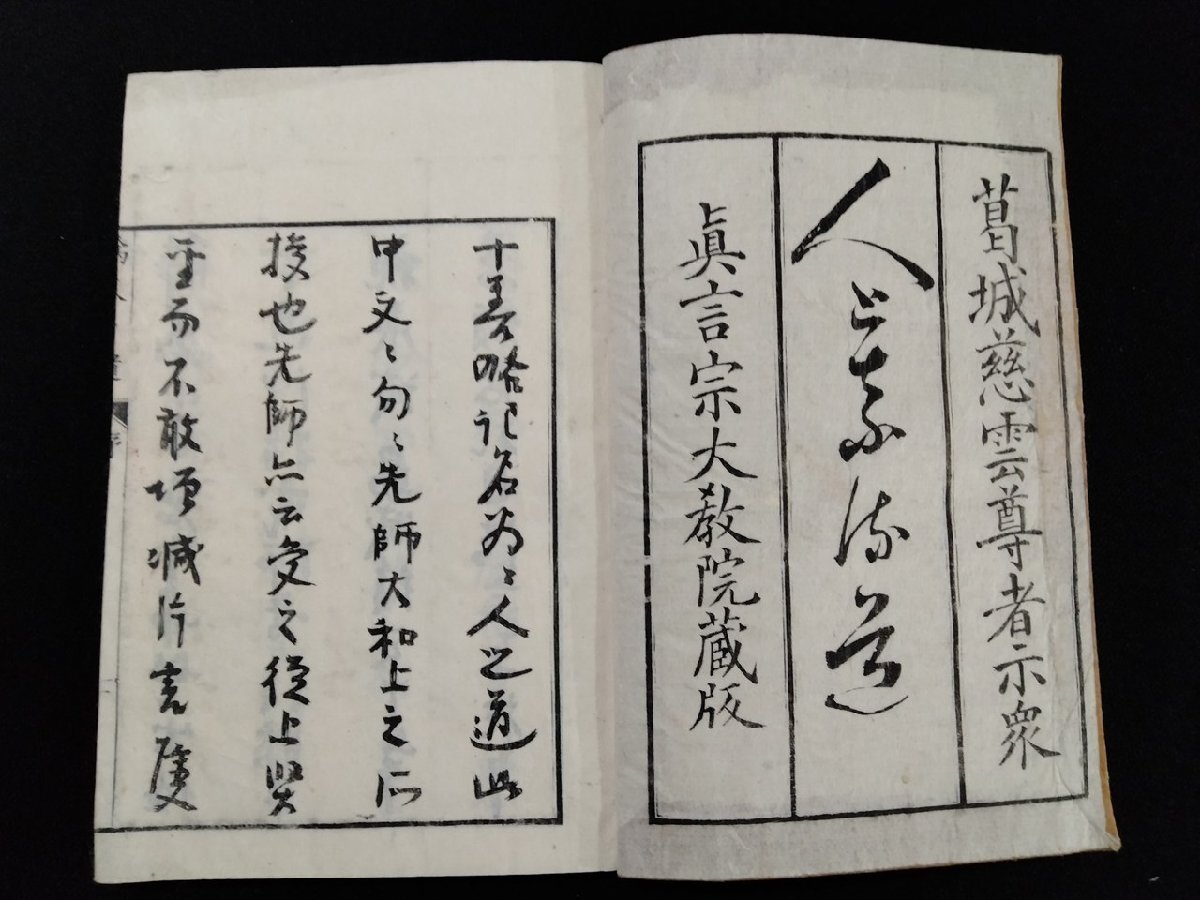 葛城慈雲尊者示衆
人となる道
眞言宗大教院蔵版
十善略記名为〻人之道此
中文〻句〻先師大和上之所
授也先師亦云受之從上賢
聖而不敢増減片言隻